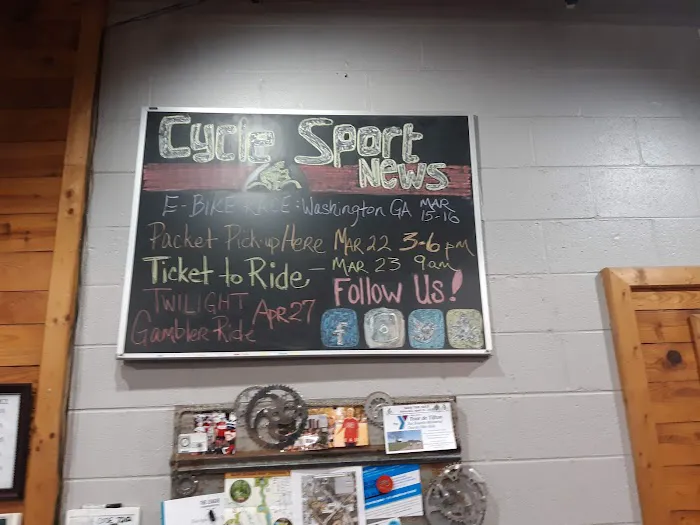 Cycle Sport
News
E-BIKE RACE: Washington GA MAR 15-16
Packet Pick-up Here MAR 22 3-6 pm
Ticket to Ride - MAR 23 9am
TWILIGHT
Gambler Ride Apr 27
Follow Us!